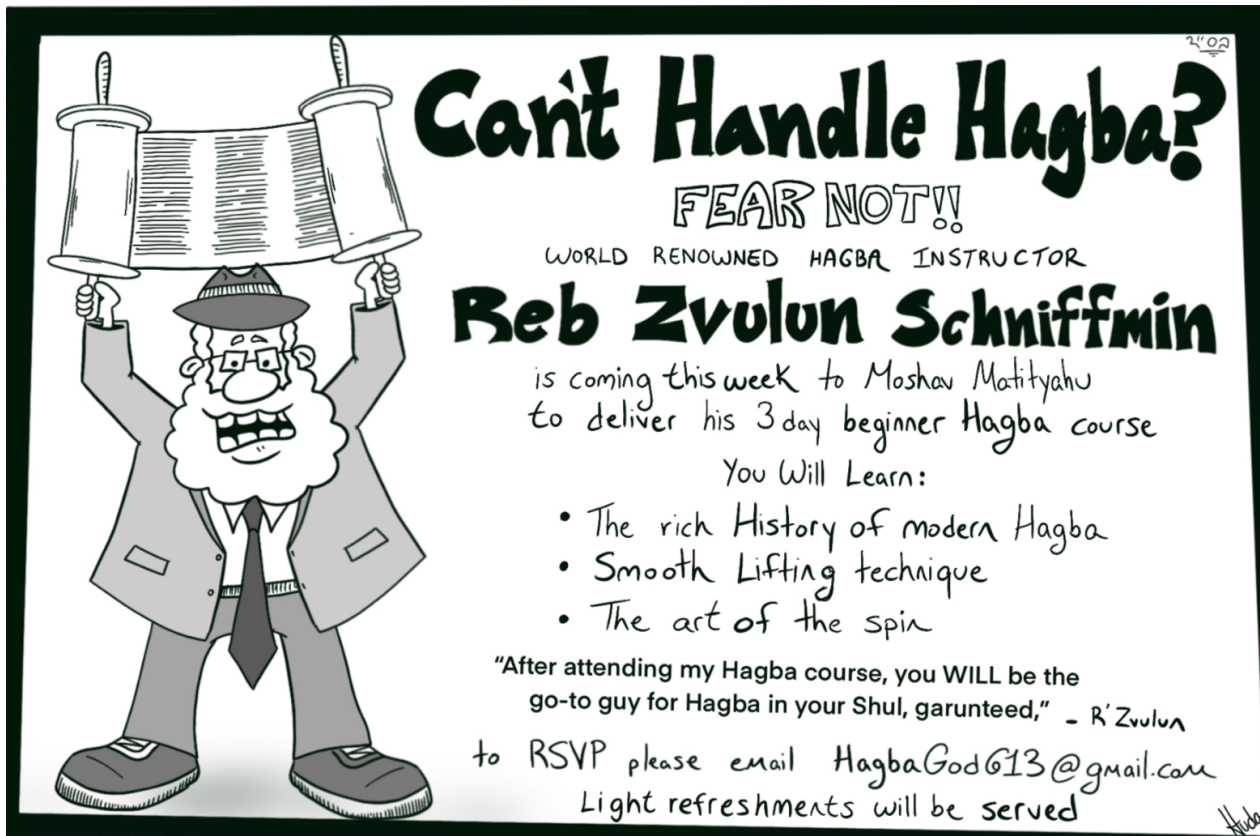 בס"ד
Can't Handle Hagba?
FEAR NOT!!
WORLD RENOWNED HAGBA INSTRUCTOR
Reb Zvulun Schniffmin
is coming this week to Moshav Matityahu
to deliver his 3 day beginner Hagba course
You Will Learn:
• The rich History of modern Hagba
• Smooth Lifting technique
• The art of the spin
"After attending my Hagba course, you WILL be the
go-to guy for Hagba in your Shul, garunteed," - R' Zvulun
to RSVP please email HagbaGod613@gmail.com
Light refreshments will be served